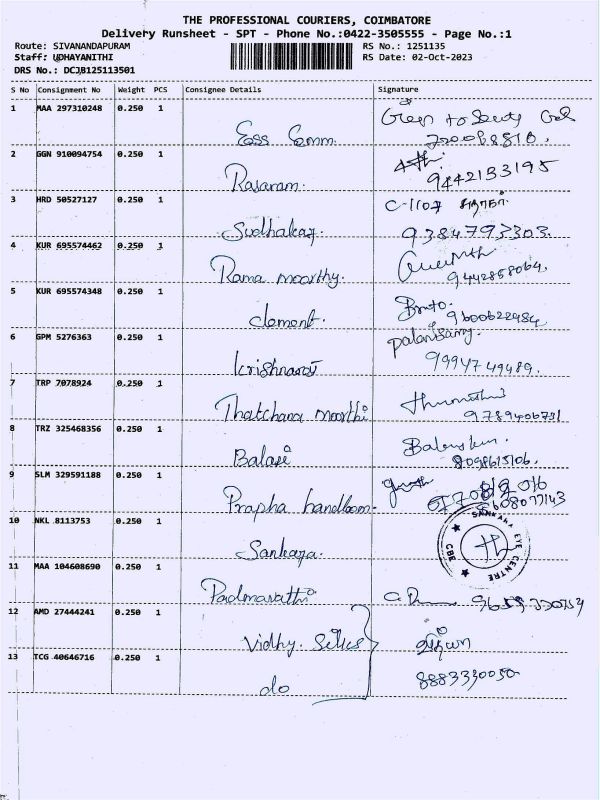 THE PROFESSIONAL COURIERS, COIMBATORE
Delivery Runsheet - SPT - Phone No.:0422-3505555 - Page No.:1
Route: SIVANANDAPURAM RS No.: 1251135
Staff: UDHAYANITHI RS Date: 02-Oct-2023
DRS No.: DCJB125113501
S No Consignment No Weight PCS Consignee Details Signature
1 MAA 297310248 0.250 1
Ess Comm.
2 GGN 910094754 0.250 1
Rasaram. 9442133195
3 HRD 50527127 0.250 1 C-1107
Sudhakar. 9384793303.
4 KUR 695574462 0.250 1
Rama moorthy. 9442868064.
5 KUR 695574348 0.250 1
clement. 9600622484
6 GPM 5276363 0.250 1 palanisamy.
Krishnaraj 9994749489.
7 TRP 7078924 0.250 1
Thatchana moorthi 9789406731
8 TRZ 325468356 0.250 1
Balaji 8098615106.
9 SLM 329591188 0.250 1
Prapha handloom. 8608077143
10 NKL 8113753 0.250 1 SANKARA EYE CENTRE CBE
Sankara.
11 MAA 104608690 0.250 1
Padmavathi 9659330754
12 AMD 27444241 0.250 1
Vidhy. Silks
13 TCG 40646716 0.250 1 8883330050
do